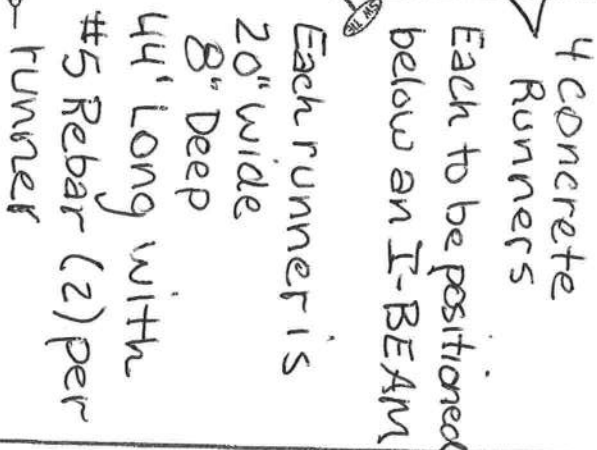 4 concrete
Runners
Each to be positioned
below an I-BEAM
Each runner is
20" wide
8" Deep
44' Long with
#5 Rebar (2) per
runner